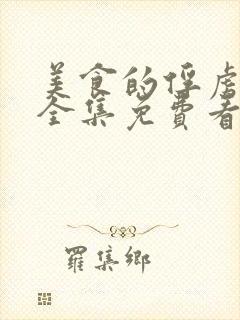 美食的俘虏
全集免费看
羅集鄉